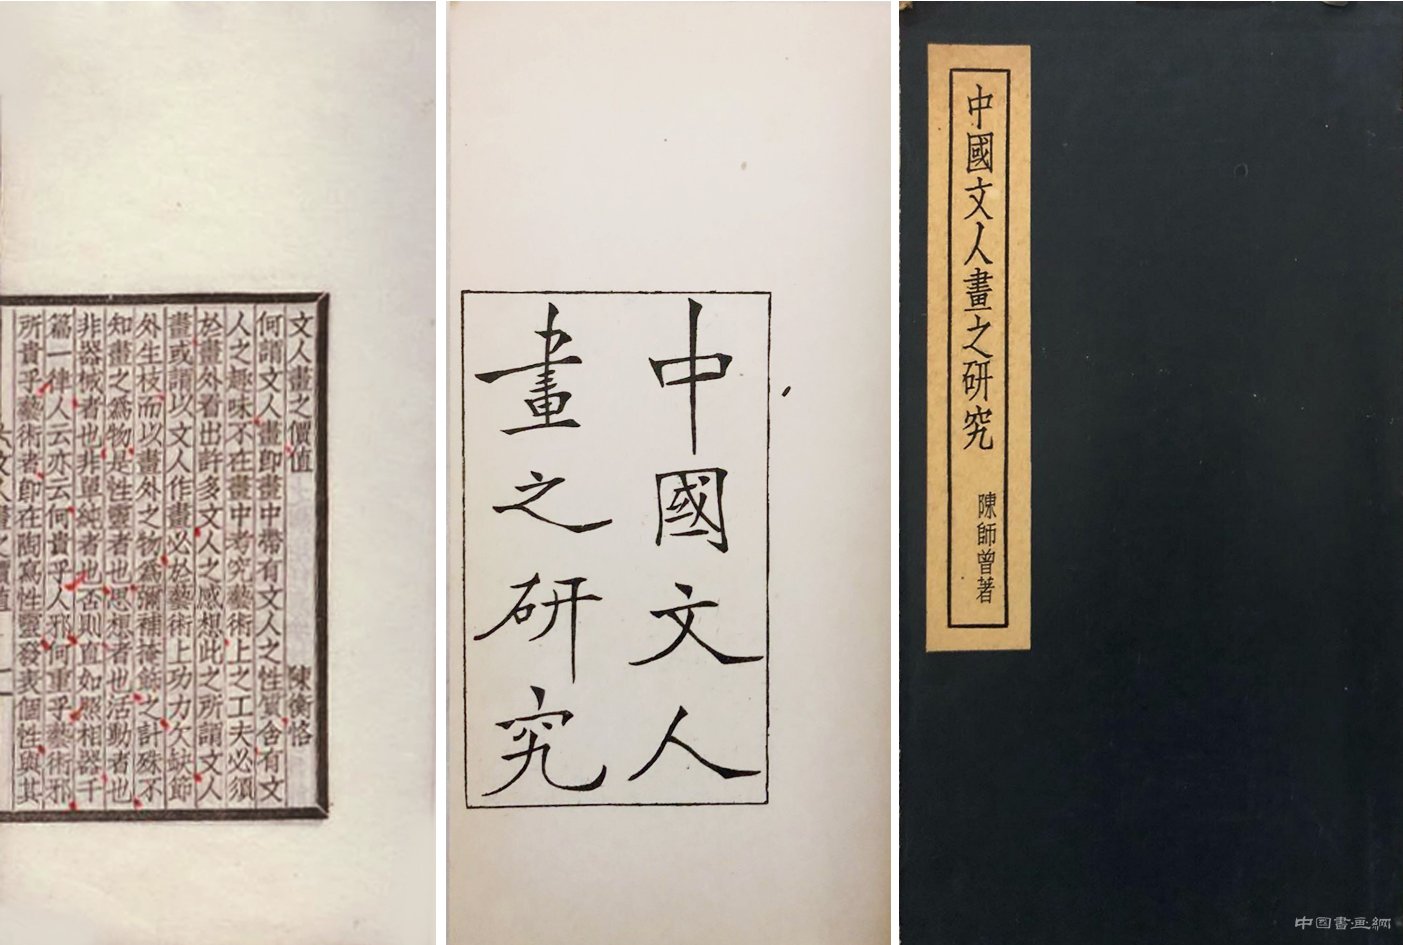 文人畫之價值 陳衡恪
何謂文人畫卽畫中帶有文人之性質含有文
人之趣味不在畫中考究藝術上之工夫必須
於畫外看出許多文人之感想此之所謂文人
畫或謂以文人作畫必於藝術上功力欠缺節
外生枝而以畫外之物爲彌補掩飾之計殊不
知畫之爲物是性靈者也思想者也活動者也
非器械者也非單純者也否則直如照相器千
篇一律人云亦云何貴乎人邪何重乎藝術邪
所貴乎藝術者卽在陶寫性靈發表個性與其
中國文人
畫之研究
中國文人畫之研究
陳師曾著
中国書画網